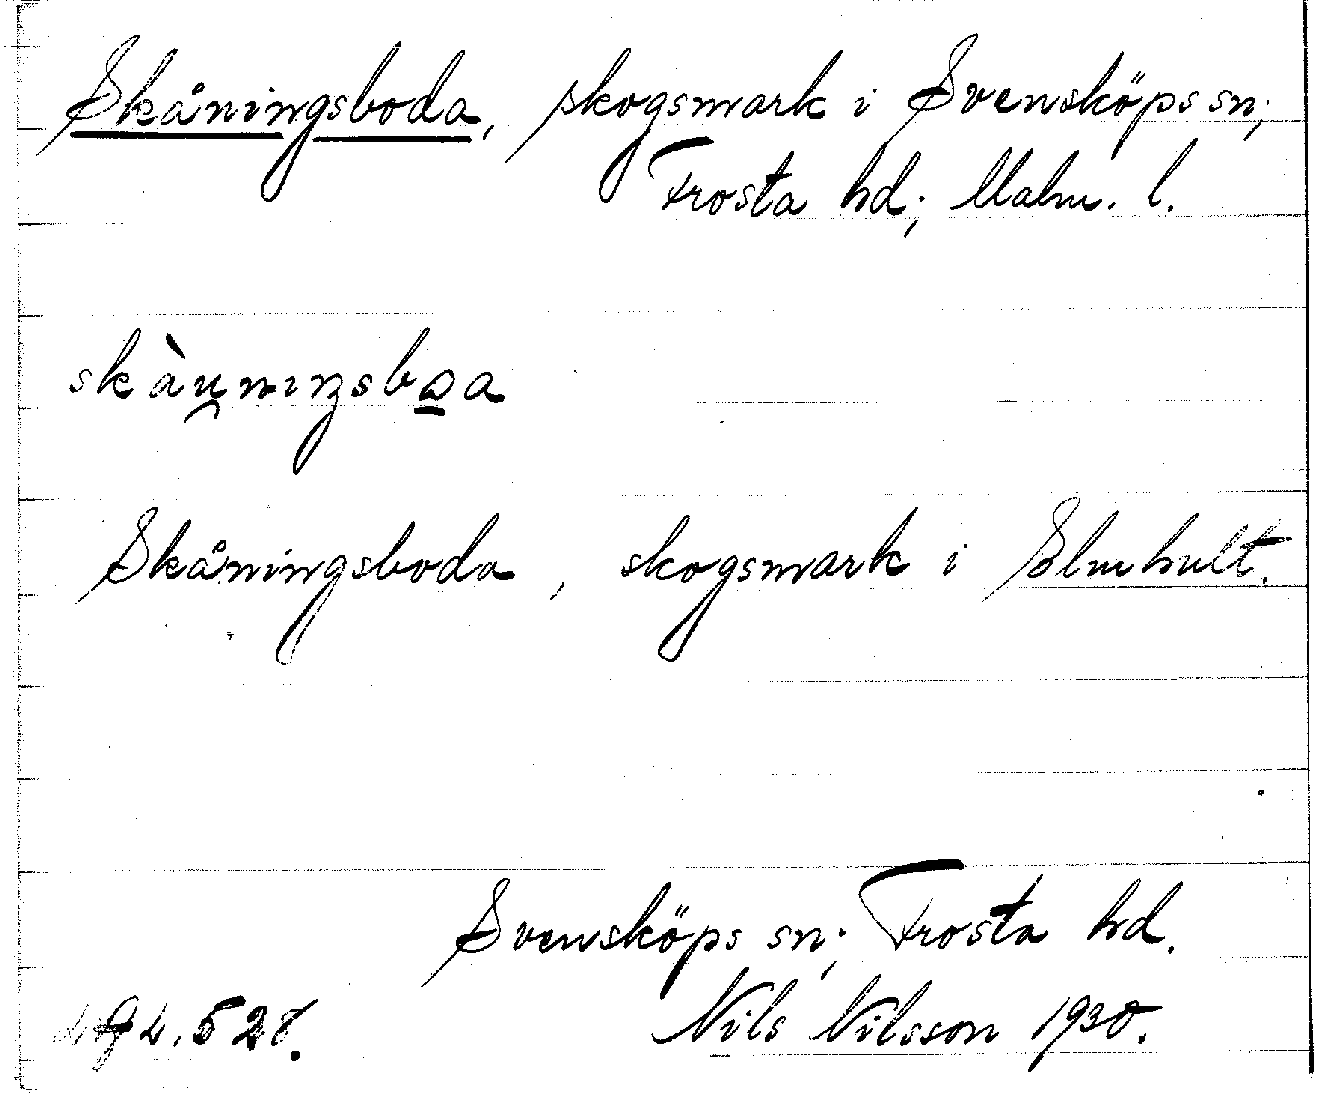 Skåningsboda, skogsmark i Svensköps sn;
Frosta hd; Malm. l.
Skåningsboda, skogsmark i Elmhult.
Svensköps sn; Frosta hd.
Nils Nilsson 1930.